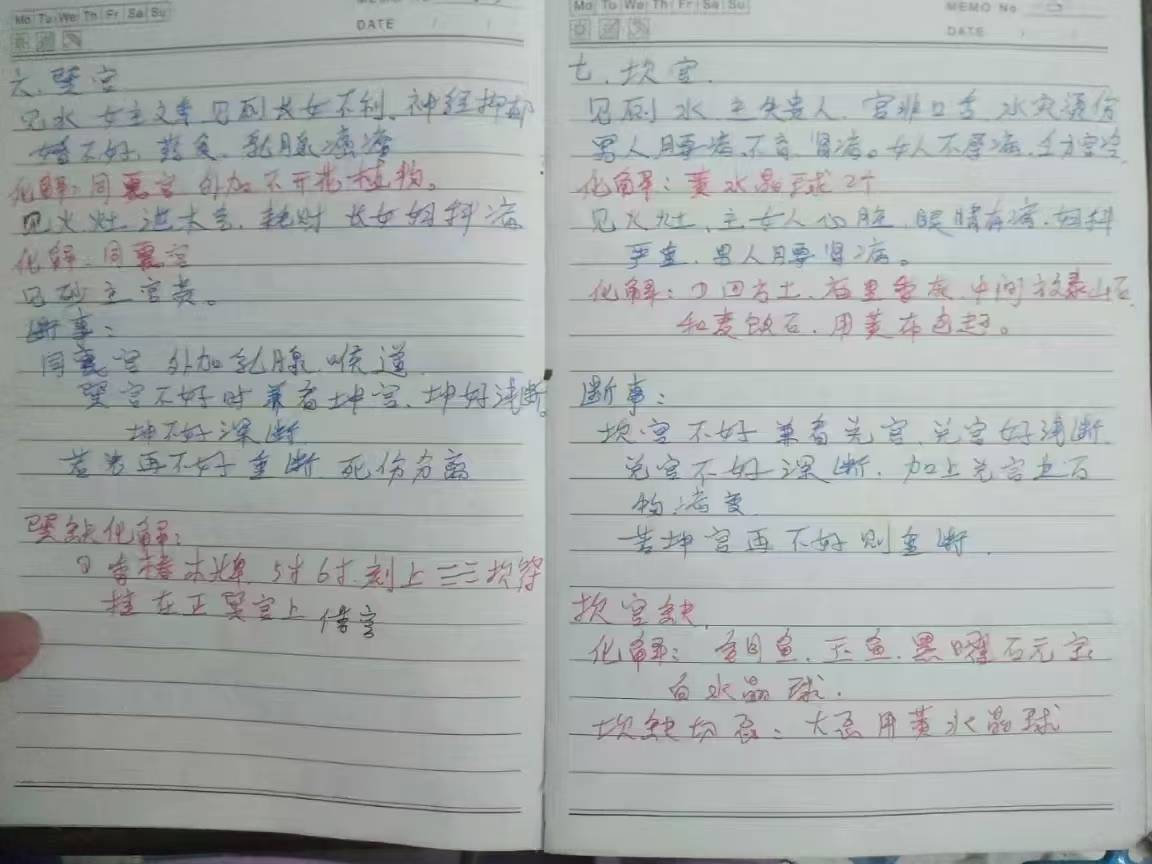 Mo Tu We Th Fr Sa Su
DATE
六、巽宫
见水 女主文秀 见刮长女不利、神经抑郁
婚不好、乳腺
化解：同 宫 外加不开花植物。
见火灶 泄木气、耗财 长女妇科病
化解：同 宫
见砂主富贵。
断事：
同 宫 外加乳腺、喉道
巽宫不好时兼看坤宫、坤好浅断
坤不好深断
若 再不好重断 死伤分离
巽缺化解：
香椿木牌 5寸6寸 刻上 坎
挂在正巽宫上
Mo Tu We Th Fr Sa Su
MEMO No
DATE
七、坎宫
见刮 水 主失贵人、官非口舌 水灾
男人腰病、不育、肾病。女人不孕病、子宫
化解：黄水晶球2个
见火灶、主女人心脏、眼睛有病、妇科
严重、男人腰肾病。
化解： 中间放泰山石
和麦饭石、用黄布包起。
断事：
坎宫不好兼看兑宫、兑宫好浅断
兑宫不好深断、加上兑宫
病变
若坤宫再不好则重断、
坎宫缺
化解：铜鱼、玉鱼、黑曜石元宝
白水晶球．
坎缺切忌：大忌用黄水晶球